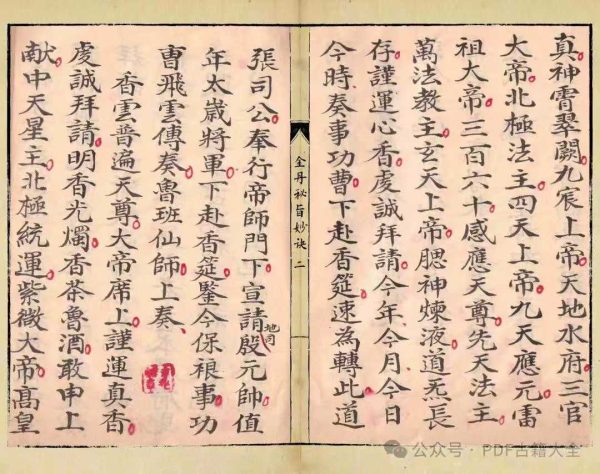 真神霄翠闕九宸上帝天地水府三官
大帝北極法主四天上帝九天應元雷
祖大帝三百六十感應天尊先天法主
萬法教主玄天上帝腮神煉液道炁長
存謹運心香虔誠拜請今年今月今日
今時奏事功曹下赴香筵速為轉此道
金丹秘旨妙訣 二
張司公奉行帝師門下宣請地司殷元帥值
年太歲將軍下赴香筵鑒今保裉事功
曹飛雲傳奏魯班仙師上奏
香雲普遍天尊大帝席上謹運真香
虔誠拜請明香光燭香茶魯酒敢申上
献中天星主北極統運紫微大帝高皇
公众号·PDF古籍大全